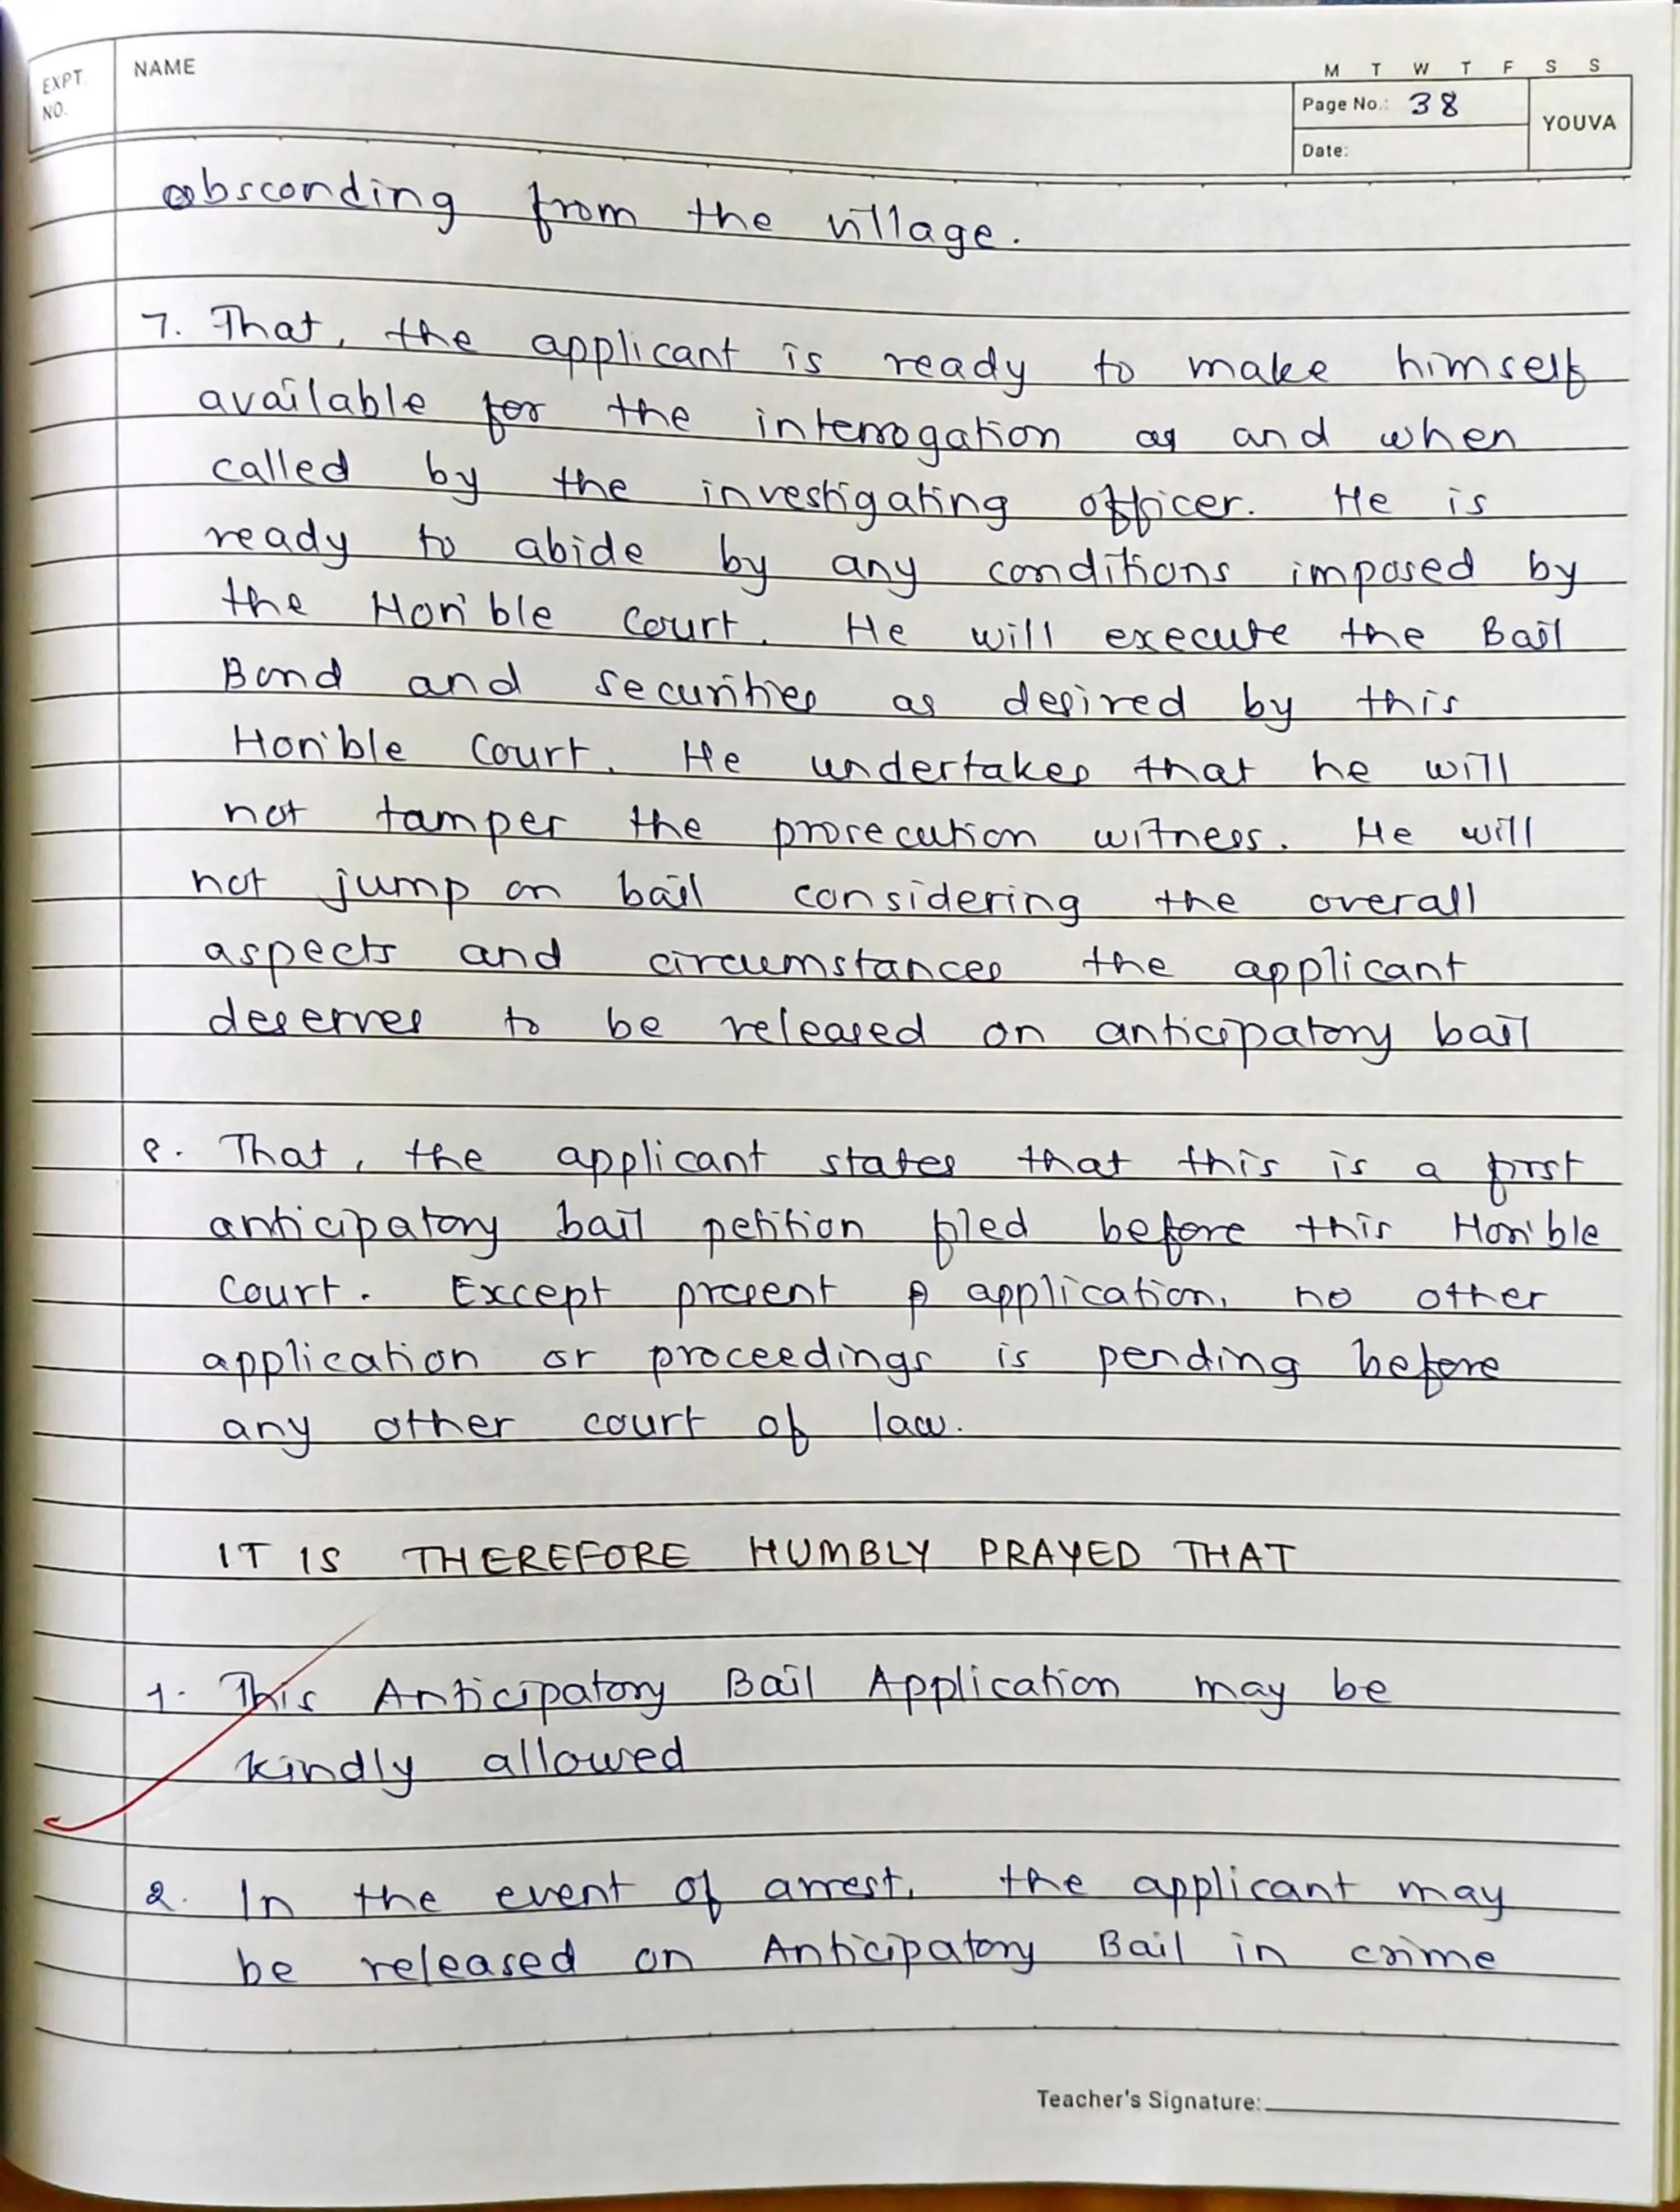 EXPT. NO.
NAME
M T W T F S S
Page No.: 38
YOUVA
Date:
absconding from the village.
7. That, the applicant is ready to make himself
available for the interrogation as and when
called by the investigating officer. He is
ready to abide by any conditions imposed by
the Hon'ble Court. He will execute the Bail
Bond and securities as desired by this
Hon'ble Court. He undertakes that he will
not tamper the prosecution witness. He will
not jump on bail considering the overall
aspects and circumstances the applicant
deserves to be released on anticipatory bail
8. That, the applicant states that this is a first
anticipatory bail petition filed before this Hon'ble
Court. Except present application, no other
application or proceedings is pending before
any other court of law.
IT IS THEREFORE HUMBLY PRAYED THAT
1. This Anticipatory Bail Application may be
kindly allowed
2. In the event of arrest, the applicant may
be released on Anticipatory Bail in crime
Teacher's Signature: